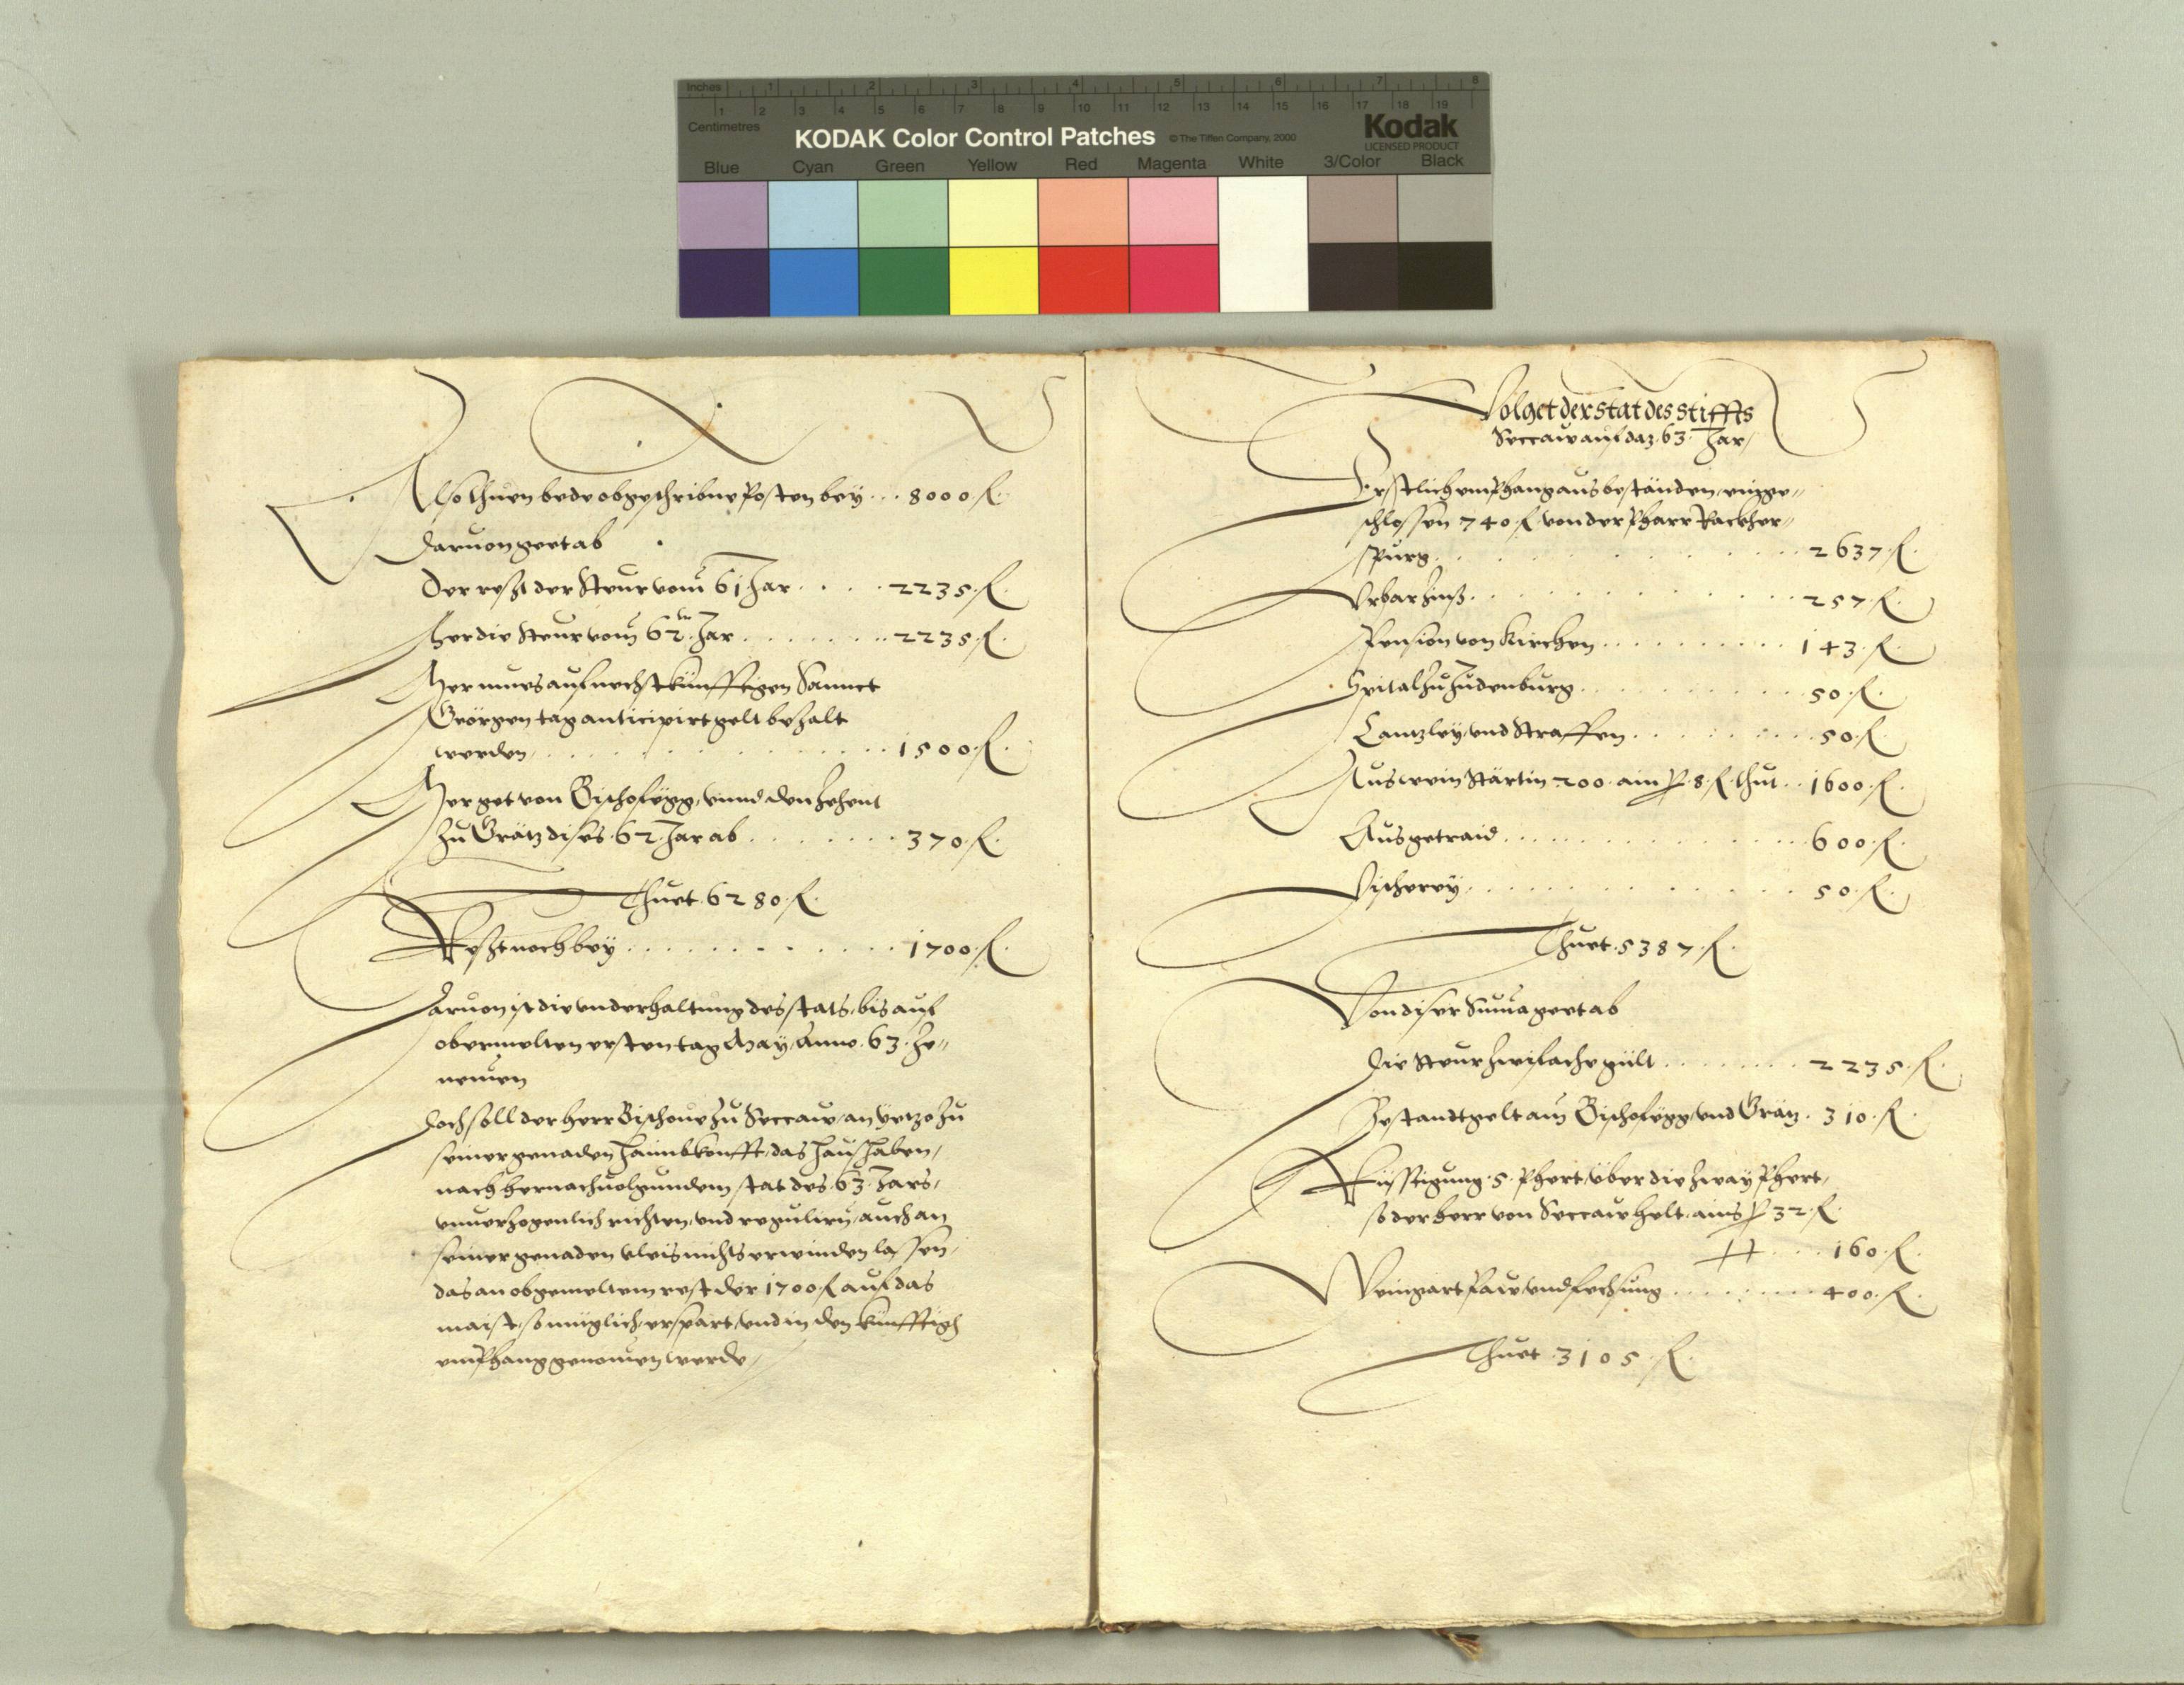 Inches 1 2 3 4 5 6 7 8
1 2 3 4 5 6 7 8 9 10 11 12 13 14 15 16 17 18 19
Centimetres
KODAK Color Control Patches © The Tiffen Company, 2000 Kodak
LICENSED PRODUCT
Blue Cyan Green Yellow Red Magenta White 3/Color Black
Also thuen bede obgeschribne Posten bey ... 8000 fl.
Daruon geet ab
Der resst der Steur vom 61 Jar .... 2235 fl.
Mer die Steur vom 62. Jar ....... 2235 fl.
Mer mues auf nechstkünfftigen Sannct
Geörgen tag anticipirt gelt bezalt
werden ....... 1500 fl.
Mer get von Bischofegg, vnnd den Zehent
zu Grätz dises 62. Jar ab ....... 370 fl.
Thuet 6280 fl.
Resst noch bey ............ 1700 fl.
Daruon ist die vnderhaltung des stats, bis auf
obermelten ersten tag May, Anno. 63. ze-
nemen
Doch soll der herr Bischoue zu Seccaw, an yetzo zu
seiner genaden haimbkonfft, das haushaben,
nach hernachuolgundem stat des 63. Jars,
vnuerzogenlich richten, vnd regulirn, auch an
seiner genaden vleis nichts erwinden lassen,
das an obgemeltem rest der 1700 fl auf das
maist, so müglich, erspart, vnd in den künfftigen
emphang genomen werde,
Volget der stat des Stiffts
Seccaw auf daz 63. Jar,
Erstlich emphang aus beständen, einge-
schlossen 740 fl von der Pharr Rackher-
spurg ....... 2637 fl.
Vrbar Zinß ....... 257 fl.
Pension von Kirchen .......... 143 fl.
Spital zu Judenburg ....... 50 fl.
Cantzley, vnd Straffen ....... 50 fl.
Aus wein Stärtin 200. ain p 8. fl. thut .. 1600 fl.
Aus getraid ....... 600 fl.
Vischerey ....... 50 fl.
Thuet 5387 fl.
Von diser Suma geet ab
Die Steur zwifache gült ........ 2235 fl.
Bestandtgelt am Bischofegg, vnd Grätz . 310 fl.
Rüsstigung 5. Phert, über die zway Phert,
so der herr von Seccaw helt. ains p 32 fl.
.... 160 fl.
Weingart Paw, vnd fechsung ......... 400 fl.
Thuet 3105 fl.